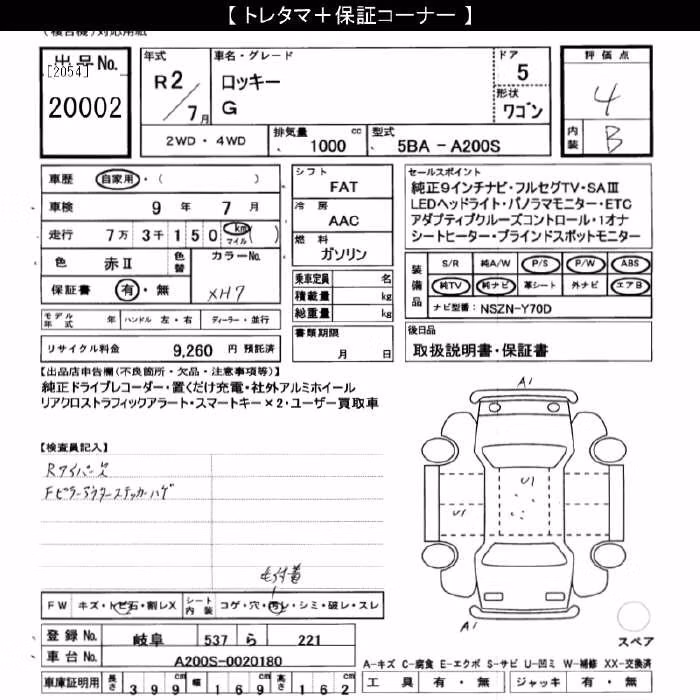 【 トレタマ＋保証コーナー 】
(複合機) 対応用紙
出品No.
[2054]
20002
年式
R2/7月
車名・グレード
ロッキー
G
ドア
5
形状
ワゴン
評価点
4
内装
B
2WD・4WD
排気量
1000 cc
型式
5BA－A200S
車歴 自家用・( )
車検 9年 7月
走行 7万 3千 150 km マイル ( )
色 赤Ⅱ 色替 カラーNo.
保証書 有・無 XH7
モデル年式 年 ハンドル 左・右 ディーラー・並行
リサイクル料金 9,260 円 預託済
シフト
FAT
冷房
AAC
燃料
ガソリン
乗車定員 名
積載量 kg
総重量 kg
書類期限
月 日
セールスポイント
純正9インチナビ・フルセグTV・SAⅢ
LEDヘッドライト・パノラマモニター・ETC
アダプティブクルーズコントロール・1オナ
シートヒーター・ブラインドスポットモニター
装備品
S/R 純A/W P/S P/W ABS
純TV 純ナビ 革シート 外ナビ エアB
ナビ型番： NSZN-Y70D
後日品
取扱説明書・保証書
【出品店申告欄(不良箇所・欠品・注意事項等)】
純正ドライブレコーダー・置くだけ充電・社外アルミホイール
リアクロストラフィックアラート・スマートキー×2・ユーザー買取車
【検査員記入】
Rワイパー欠
Fピラーアウターステッカーハゲ
毛付着
FW キズ・トビ石・割レX シート内装 コゲ・穴・汚レ・シミ・破レ・スレ
登録No. 岐阜 537 ら 221
車台No. A200S-0020180
車庫証明用 長さ 399cm 幅 169cm 高さ 162cm
A1
U1
U1
A1
スペア
A－キズ C－腐食 E－エクボ S－サビ U－凹ミ W－補修 XX－交換済
工具 有・無 ジャッキ 有・無